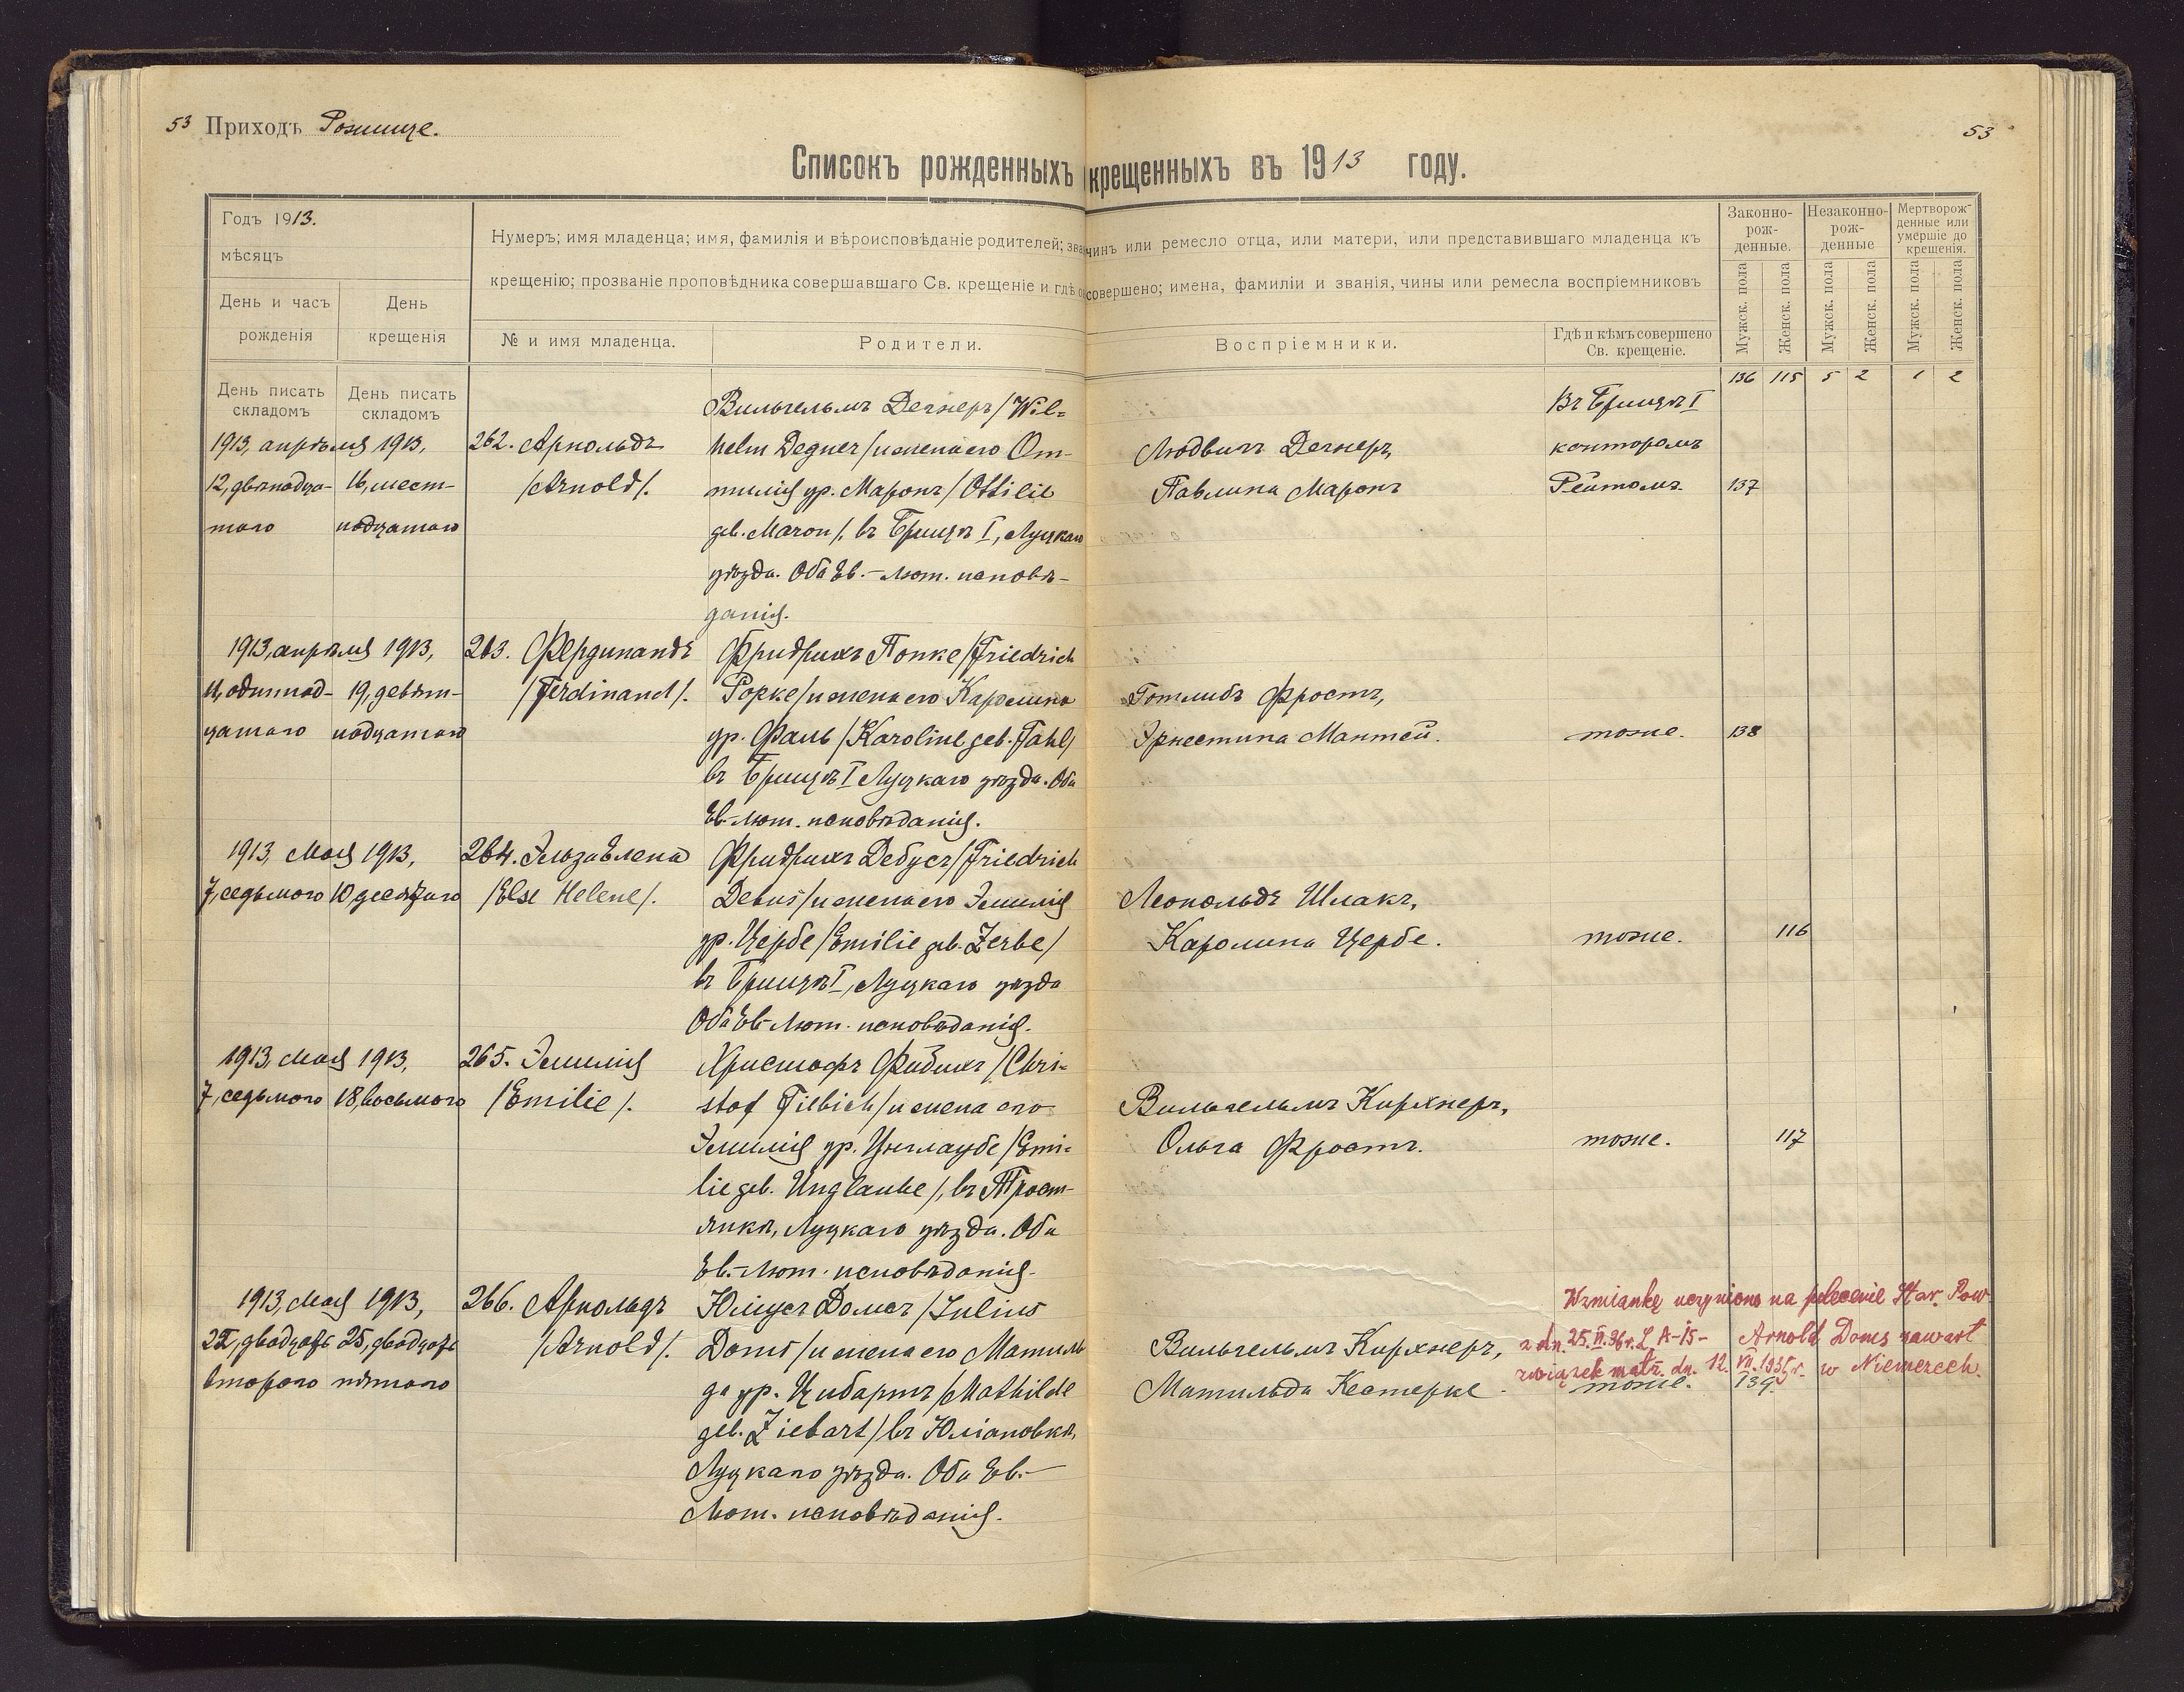 53 Приходъ Рожище.
53
Списокъ рожденныхъ крещенныхъ въ 1913 году.
Годъ 1913.
мѣсяцъ
День и часъ рожденія
День крещенія
Нумеръ; имя младенца; имя, фамилія и вѣроисповѣданіе родителей; зва чинъ или ремесло отца, или матери, или представившаго младенца къ
крещенію; прозваніе проповѣдника совершавшаго Св. крещеніе и гдѣ о совершено; имена, фамиліи и званія, чины или ремесла воспріемниковъ
№ и имя младенца.
Родители.
Воспріемники.
Гдѣ и кѣмъ совершено
Св. крещеніе.
Законно-
рож-
денные.
Незаконно-
рож-
денные
Мертворож-
денные или
умершіе до
крещенія.
Мужск. пола
Женск. пола
Мужск. пола
Женск. пола
Мужск. пола
Женск. пола
136 115 5 2 1 2
День писать
складомъ
День писать
складомъ
1913, апрѣля 1913,
12, двѣнадца-
таго
16, шест-
надцатаго
262. Арнольдъ
/Arnold/.
Вильгельмъ Дегнеръ /Wil-
helm Degner/ и жена его От-
тилія ур. Маронъ /Ottilie
geb. Maron/, въ Брищѣ I, Луцкаго
уѣзда. Оба Ев.-Лют. исповѣ-
данія.
Людвигъ Дегнеръ,
Павлина Маронъ
Въ Брищѣ I
канторомъ
Рейтомъ.
137
1913, апрѣля 1913,
11, одиннад-
цатаго
19, девят-
надцатаго
263. Фердинандъ
/Ferdinand/.
Фридрихъ Попке /Friedrich
Popke/ и жена его Каролина
ур. Фаль /Karoline geb. Fahl/
въ Брищѣ I Луцкаго уѣзда. Оба
Ев.-Лют. исповѣданія.
Готлибъ Фростъ,
Эрнестина Мантей.
тоже.
138
1913, Мая 1913,
7, седьмого
10 десятаго
264. Эльза Елена
/Else Helene/.
Фридрихъ Дебусъ /Friedrich
Debus/ и жена его Эмилія
ур. Цербе /Emilie geb. Zerbe/
въ Брищѣ I, Луцкаго уѣзда
Оба Ев.-Лют. исповѣданія.
Леопольдъ Шлакъ,
Каролина Цербе.
тоже.
116
1913, Мая 1913,
7, седьмого
18, восьмого
265. Эмилія
/Emilie/.
Христофъ Фибихъ /Chri-
stof Fiebich/ и жена его
Эмилія ур. Унглаубе /Emi-
lie geb. Unglaube/, въ Трост-
янкѣ, Луцкаго уѣзда. Оба
Ев.-Лют. исповѣданія.
Вильгельмъ Кирхнеръ,
Ольга Фростъ.
тоже.
117
1913, Мая 1913,
22, двадцать
второго
25, двадцать
пятаго
266. Арнольдъ
/Arnold/.
Юліусъ Домсъ /Julius
Doms/ и жена его Матиль-
да ур. Цибартъ /Mathilde
geb. Ziebart/ въ Юліановкѣ,
Луцкаго уѣзда. Оба Ев.-
Лют. исповѣданія.
Вильгельмъ Кирхнеръ,
Матильда Кестерке.
тоже.
139.
Wzmiankę uczyniono na polecenie Star. Pow.
z dn. 25.VI.36r. L A-15- Arnold Doms zawarł
związek małż. dn. 12.VII.1935r. w Niemczech.